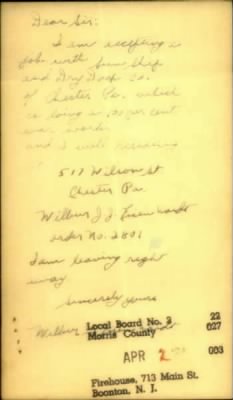 Dear Sir:
I am accepting a
job with Sun Ship
and Dry Dock Co.
of Chester Pa. which
is doing a 100 per cent
war work
and I will
511 Wilson St
Chester Pa
Wilbur J J
order No. 2801
I am leaving right
away
Sincerely yours
Wilbur
Local Board No. 2 22
Morris County 027
APR 2 003
Firehouse, 713 Main St.
Boonton, N. J.